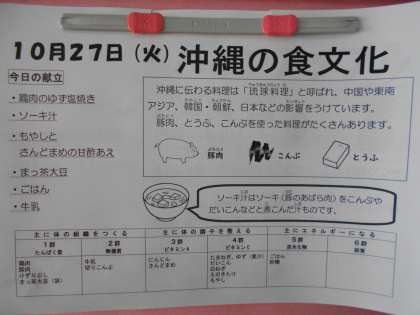 10月27日(火) 沖縄の食文化
今日の献立
・鶏肉のゆず塩焼き
・ソーキ汁
・もやしと
さんどまめの甘酢あえ
・まっ茶大豆
・ごはん
・牛乳
沖縄に伝わる料理は「琉球料理」と呼ばれ、中国や東南
アジア、韓国・朝鮮、日本などの影響をうけています。
豚肉、とうふ、こんぶを使った料理がたくさんあります。
豚肉 こんぶ とうふ
ソーキ汁はソーキ(豚のあばら肉)をこんぶや
だいこんなどと煮こんだ汁ものです。
主に体の組織をつくる 主に体の調子を整える 主にエネルギーになる
1群 2群 3群 4群 5群 6群
たんぱく質 無機質 ビタミンA ビタミンC 炭水化物 脂質
鶏肉 牛乳 にんじん たまねぎ、ゆず(果汁) ごはん
豚肉 切りこんぶ さんどまめ だいこん 砂糖
けずりぶし
まっ茶大豆(袋) えのきたけ
もやし